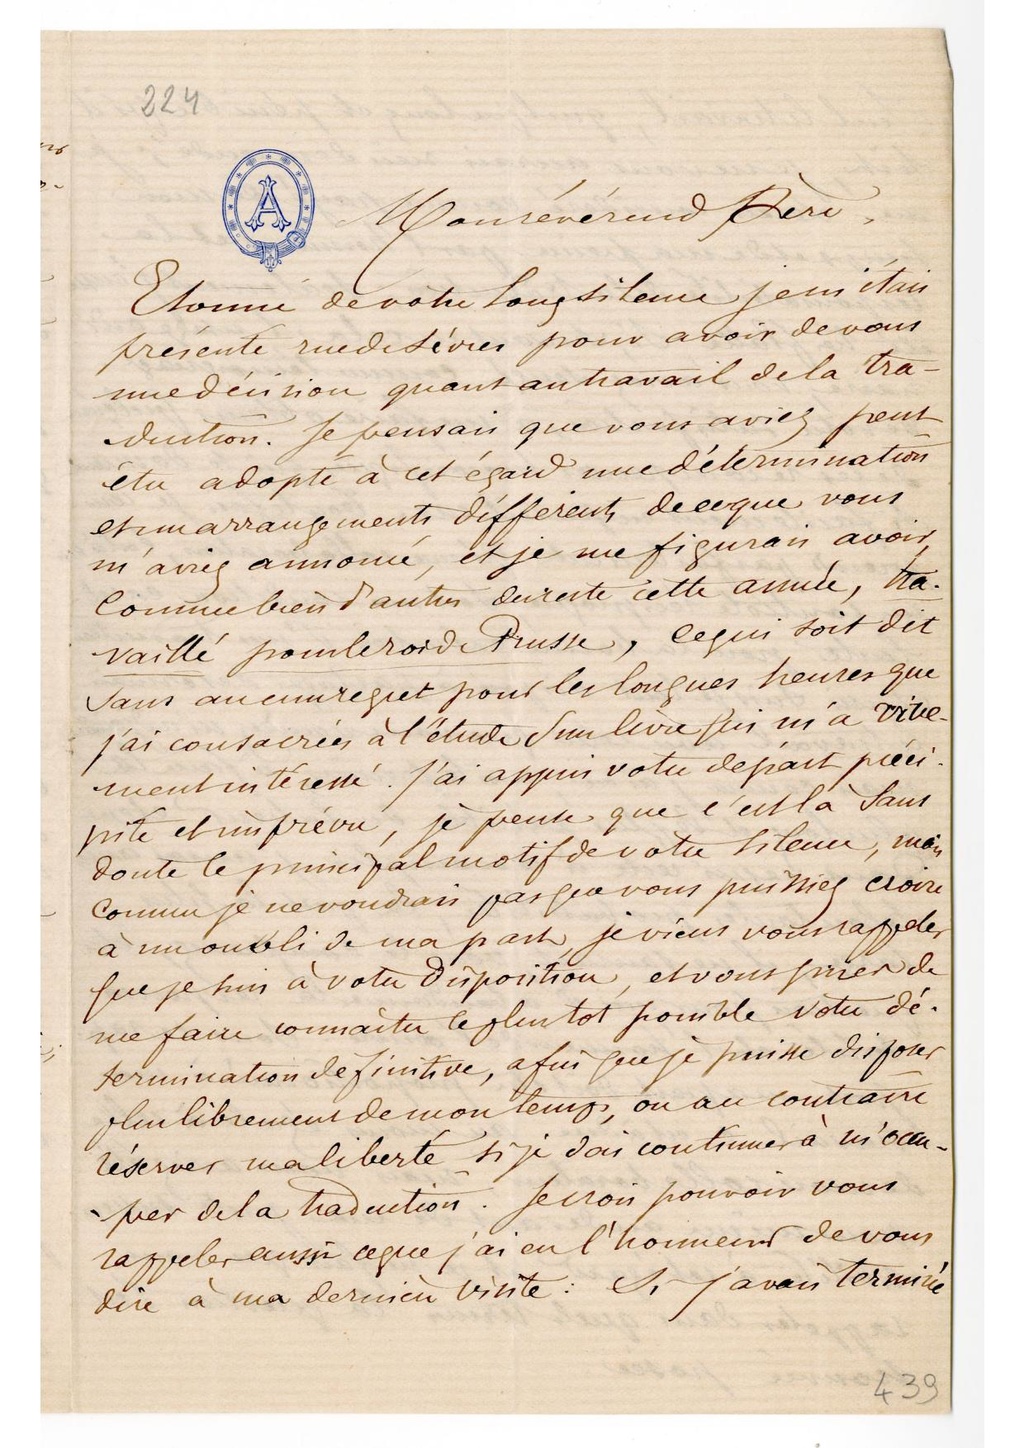 224
A
Mon révérend Père,
Etonné de votre long silence je m'étais
présenté rue de Sèvres pour avoir de vous
une décision quant au travail de la tra-
duction. Je pensais que vous aviez peut
être adopté à cet égard une détermination
et un arrangements différents de ce que vous
m'aviez annoncé, et je me figurais avoir,
comme bien d'autres du reste cette année, tra-
vaillé pour le roi de Prusse, ce qui soit dit
sans aucun regret pour les longues heures que
j'ai consacrées à l'étude d'un livre qui m'a vive-
ment intéressé. J'ai appris votre départ préci-
pité et imprévu, je pense que c'est là sans
doute le principal motif de votre silence, mais
comme je ne voudrais pas que vous puissiez croire
à un oubli de ma part, je viens vous rappeler
que je suis à votre disposition, et vous prier de
me faire connaître le plus tôt possible votre dé-
termination définitive, afin que je puisse disposer
plus librement de mon temps, ou au contraire
réserver ma liberté si je dois continuer à m'occu-
per de la traduction. Je crois pouvoir vous
rappeler aussi ce que j'ai eu l'honneur de vous
dire à ma dernière visite: Si j'avais terminé
439